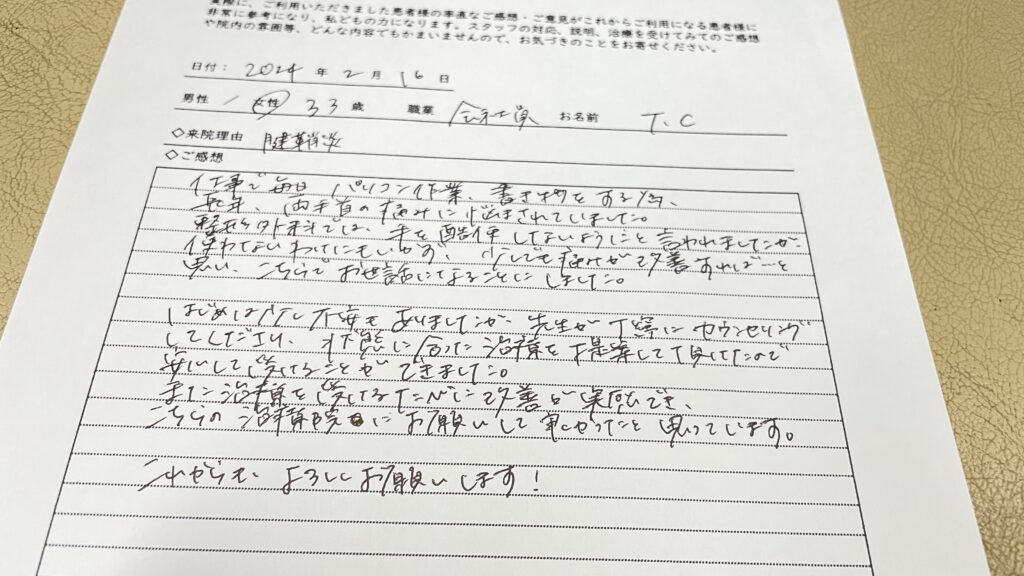 実際に、ご利用いただきました患者様の率直なご感想・ご意見がこれからご利用になる患者様に
非常に参考になり、私どもの力になります。スタッフの対応、説明、治療を受けてみてのご感想
や院内の雰囲気等、どんな内容でもかまいませんので、お気づきのことをお寄せください。
日付: 2024 年 2 月 16 日
男性 / 女性 33 歳 職業 会社員 お名前 T.C
◇来院理由 腱鞘炎
◇ご感想
仕事で毎日 パソコン作業、書き物をする為、
長年、両手首の痛みに悩まされていました。
整形外科では、手を酷使しないようにと言われましたが、
使わないわけにもいかず、少しでも痛みが改善すれば…と
思い、こちらでお世話になることにしました。
はじめは少し不安もありましたが、先生が丁寧にカウンセリング
してくださり、状態に合った治療を提案して頂けたので
安心して受けることができました。
また治療を受けるたびに改善が実感でき、
こちらの治療院にお願いして良かったと思っています。
これからも、よろしくお願いします!